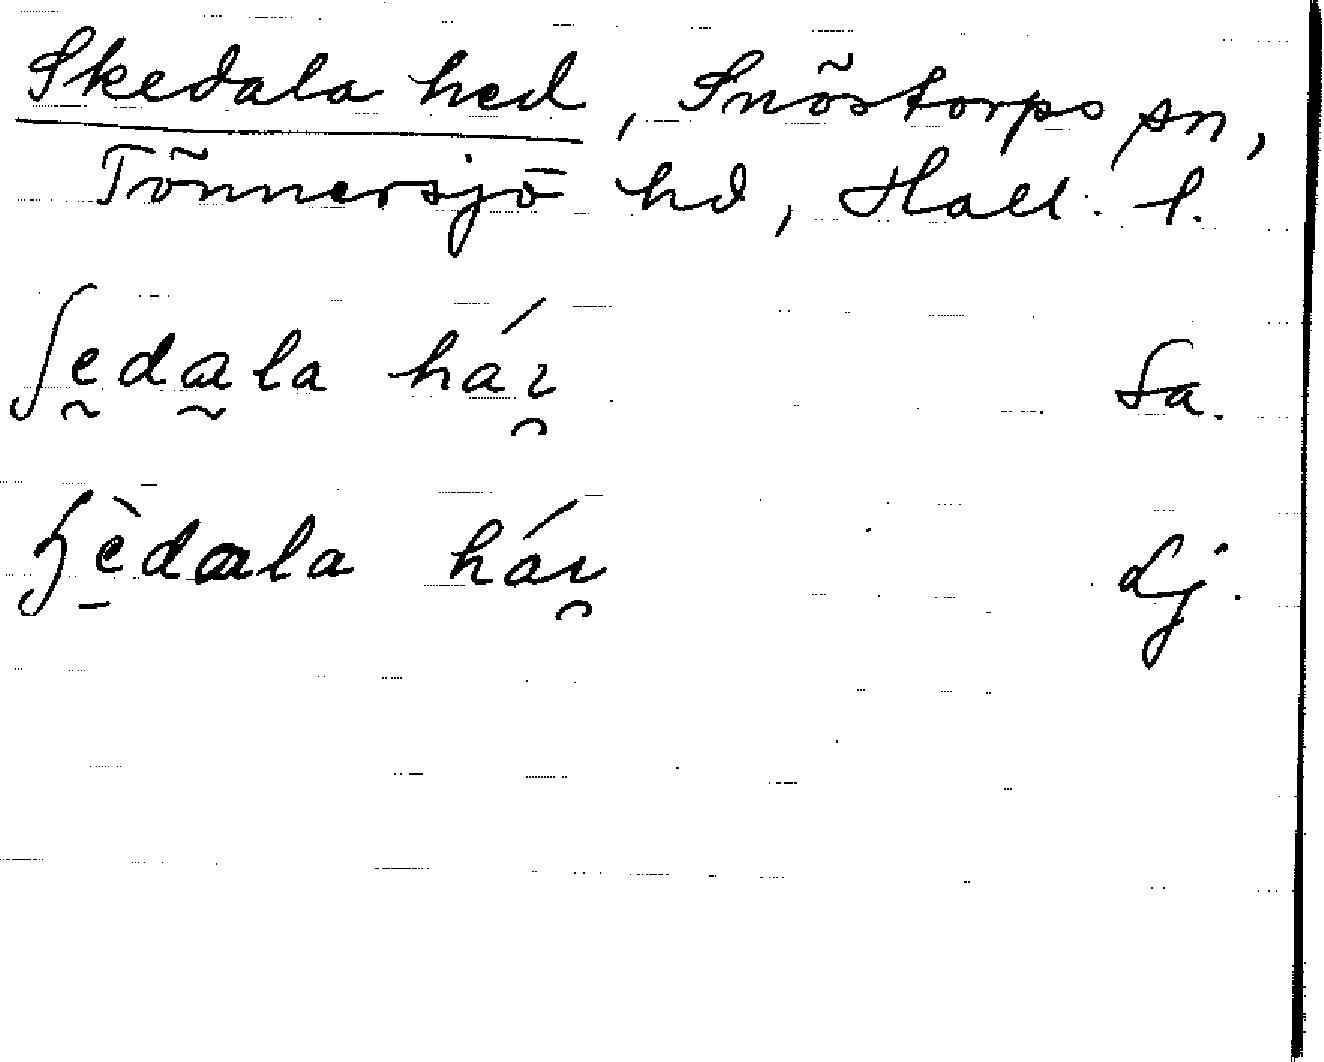 Skedala hed, Snöstorps sn,
Tönnersjö hd, Hall. l.
ʃḛda̰la háɪ̯ Sa.
ɧè̠dala háɪ̯ Lj.